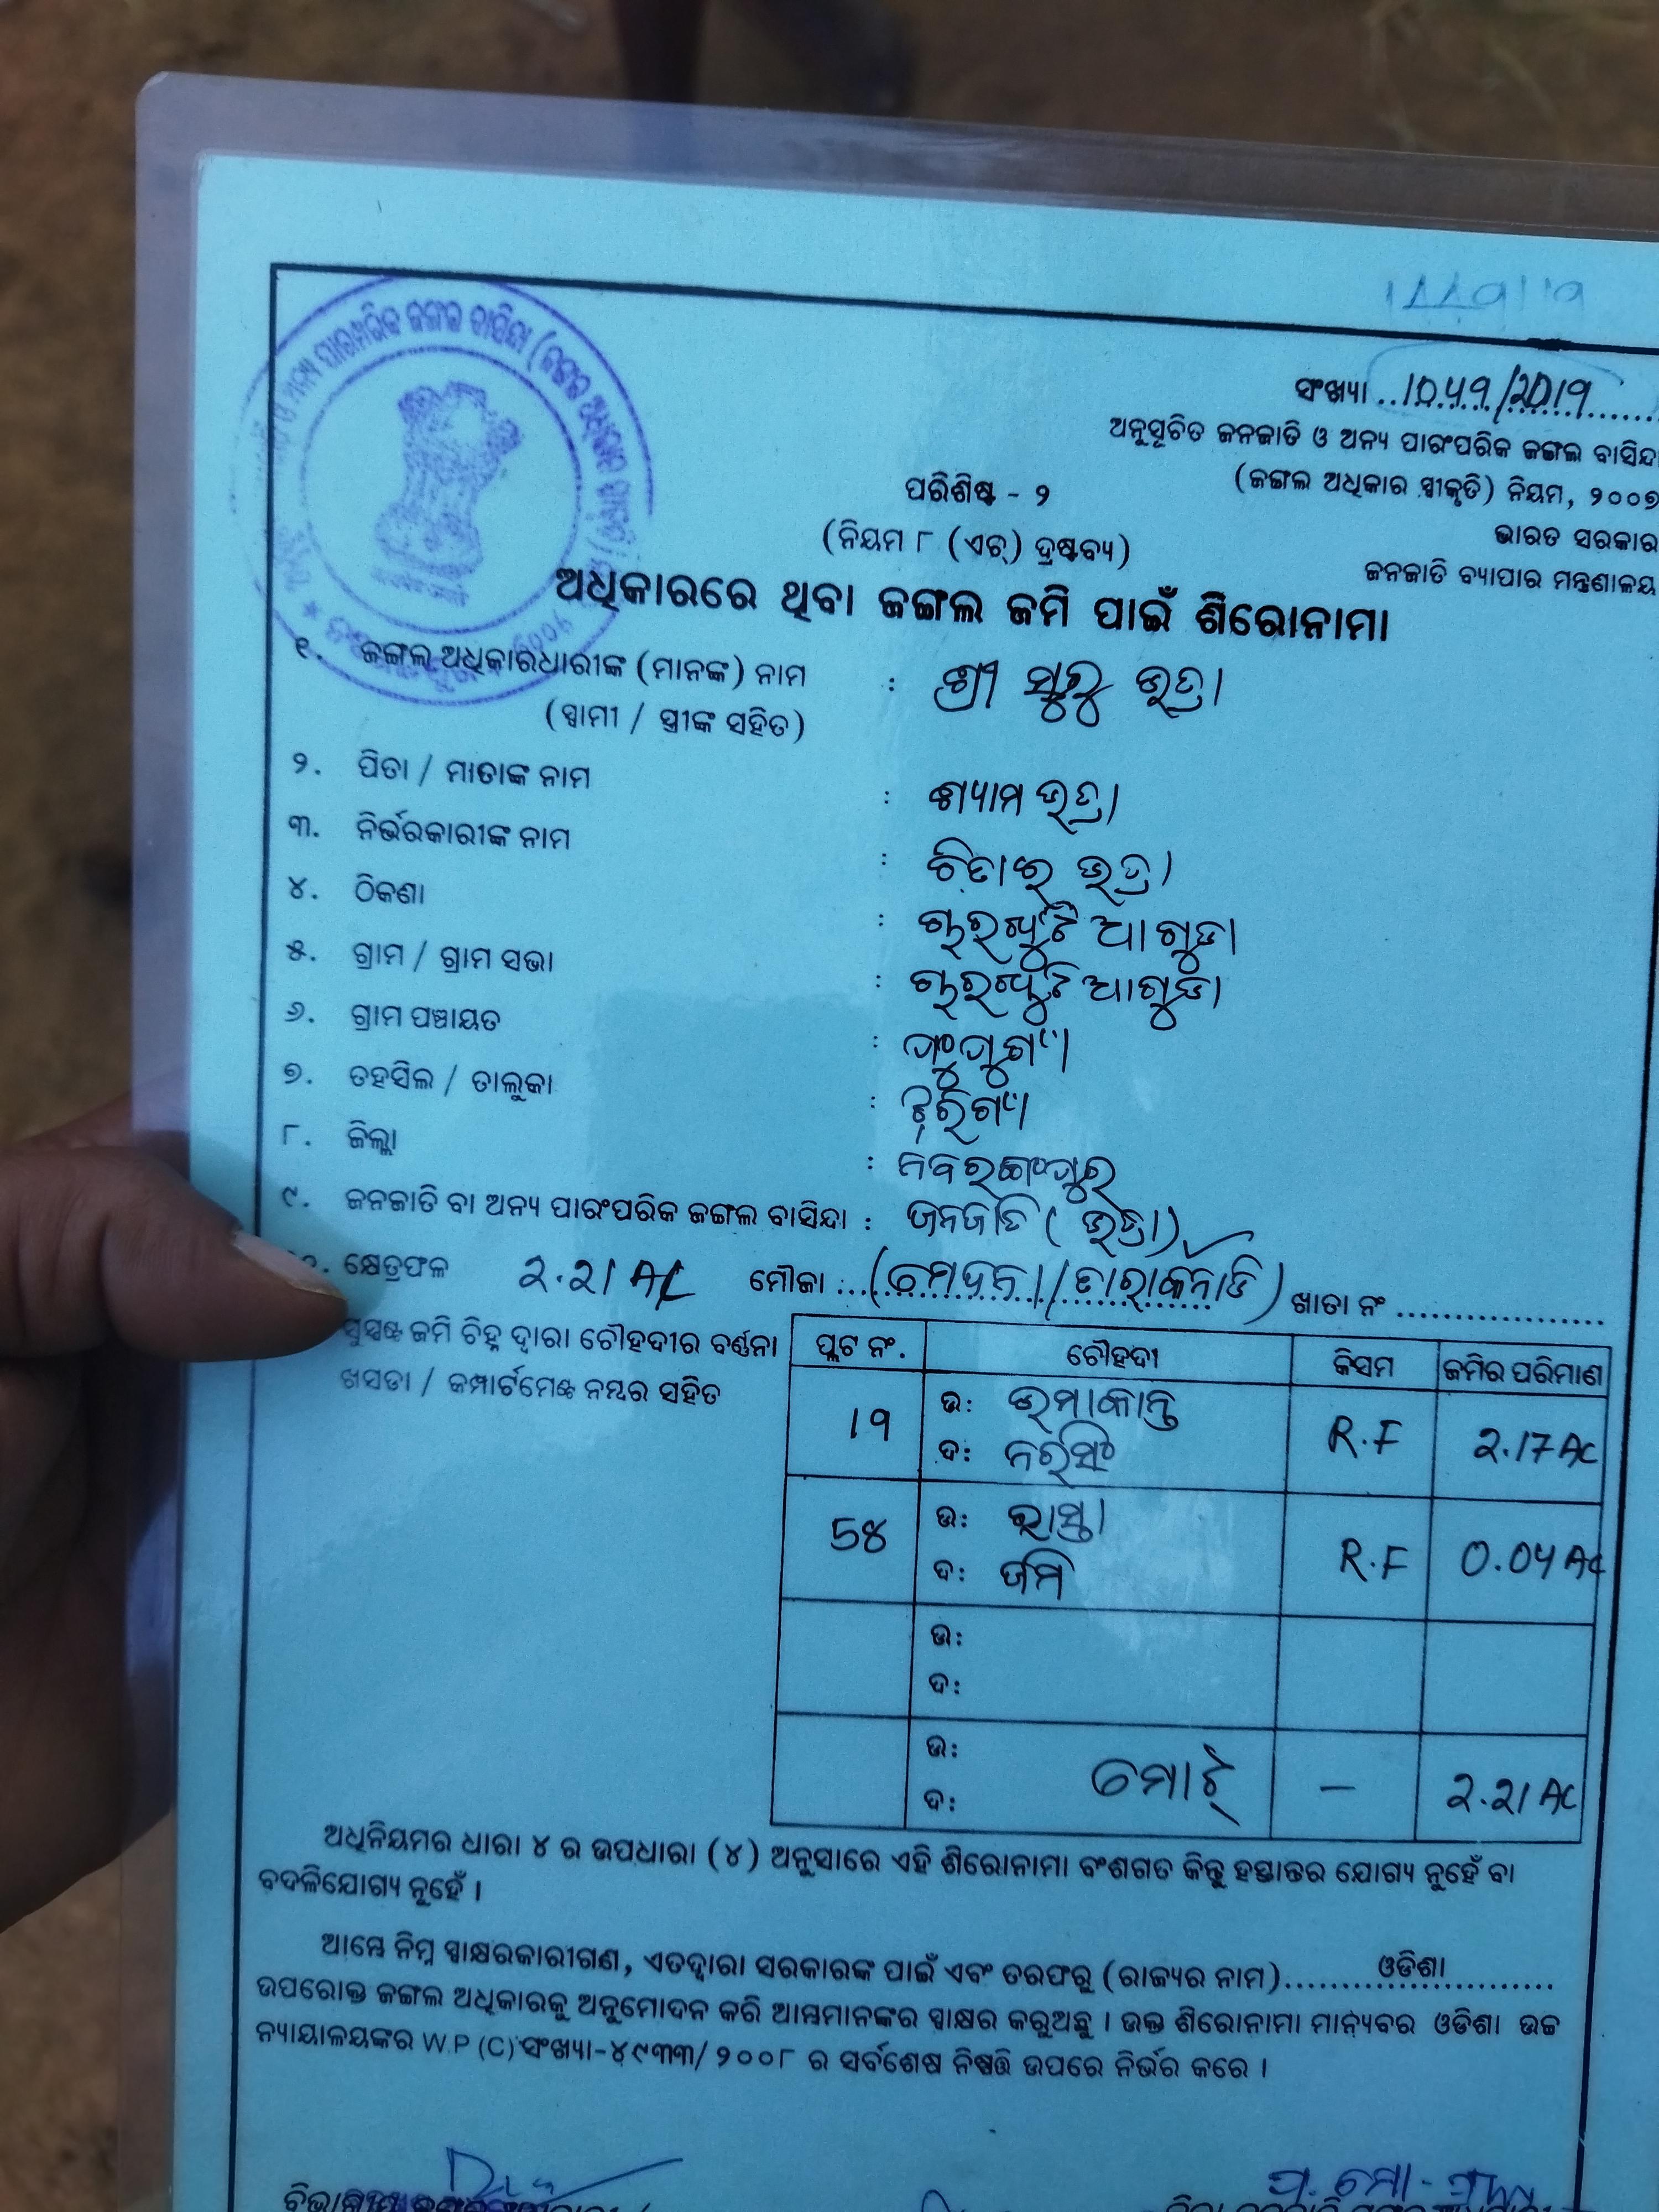 ସଂଖ୍ୟା ..10୪୨/2019......
ଅନୁସୂଚିତ ଜନଜାତି ଓ ଅନ୍ୟ ପାରଂପରିକ ଜଙ୍ଗଲ ବାସିନ୍ଦା
(ଜଙ୍ଗଲ ଅଧିକାର ସ୍ୱୀକୃତି) ନିୟମ, ୨୦୦୭
ଭାରତ ସରକାର
ଜନଜାତି ବ୍ୟାପାର ମନ୍ତ୍ରଣାଳୟ
ପରିଶିଷ୍ଟ - ୨
(ନିୟମ ୮ (ଏଚ୍) ଦ୍ରଷ୍ଟବ୍ୟ)
ଅଧିକାରରେ ଥିବା ଜଙ୍ଗଲ ଜମି ପାଇଁ ଶିରୋନାମା
୧. ଜଙ୍ଗଲ ଅଧିକାରଧାରୀଙ୍କ (ମାନଙ୍କ) ନାମ : ଶ୍ରୀ ସୁରୁ ଭତ୍ରା
(ସ୍ୱାମୀ / ସ୍ତ୍ରୀଙ୍କ ସହିତ)
୨. ପିତା / ମାତାଙ୍କ ନାମ : ଶ୍ୟାମ ଭତ୍ରା
୩. ନିର୍ଭରକାରୀଙ୍କ ନାମ : ଚିତାଇ ଭତ୍ରା
୪. ଠିକଣା :
୫. ଗ୍ରାମ / ଗ୍ରାମ ସଭା :
୬. ଗ୍ରାମ ପଞ୍ଚାୟତ :
୭. ତହସିଲ / ତାଲୁକା : ଝରିଗାଁ
୮. ଜିଲ୍ଲା : ନବରଙ୍ଗପୁର
୯. ଜନଜାତି ବା ଅନ୍ୟ ପାରଂପରିକ ଜଙ୍ଗଲ ବାସିନ୍ଦା : ଜନଜାତି (ଭତ୍ରା)
କ୍ଷେତ୍ରଫଳ 2.21 AC ମୌଜା ... ଖାତା ନଂ ..................
ସୁସ୍ପଷ୍ଟ ଜମି ଚିହ୍ନ ଦ୍ୱାରା ଚୌହଦୀର ବର୍ଣ୍ଣନା
ଖସଡା / କମ୍ପାର୍ଟମେଣ୍ଟ ନମ୍ବର ସହିତ
ପ୍ଲଟ ନଂ. ଚୌହଦୀ କିସମ ଜମିର ପରିମାଣ
19 ଉ: ଉମାକାନ୍ତ R.F 2.17 AC
ଦ: ନରସିଂ
58 ଉ: ରାସ୍ତା R.F 0.04 AC
ଦ: ଜମି
ଉ:
ଦ:
ଉ: ମୋଟ୍ - 2.21 AC
ଦ:
ଅଧିନିୟମର ଧାରା ୪ ର ଉପଧାରା (୪) ଅନୁସାରେ ଏହି ଶିରୋନାମା ବଂଶଗତ କିନ୍ତୁ ହସ୍ତାନ୍ତର ଯୋଗ୍ୟ ନୁହେଁ ବା
ବଦଳିଯୋଗ୍ୟ ନୁହେଁ ।
ଆମ୍ଭେ ନିମ୍ନ ସ୍ୱାକ୍ଷରକାରୀଗଣ, ଏତଦ୍ୱାରା ସରକାରଙ୍କ ପାଇଁ ଏବଂ ତରଫରୁ (ରାଜ୍ୟର ନାମ).......ଓଡିଶା.......
ଉପରୋକ୍ତ ଜଙ୍ଗଲ ଅଧିକାରକୁ ଅନୁମୋଦନ କରି ଆମ୍ଭମାନଙ୍କର ସ୍ୱାକ୍ଷର କରୁଅଛୁ । ଉକ୍ତ ଶିରୋନାମା ମାନ୍ୟବର ଓଡିଶା ଉଚ୍ଚ
ନ୍ୟାୟାଳୟଙ୍କର W.P (C) ସଂଖ୍ୟା-୪୯୩୩/୨୦୦୮ ର ସର୍ବଶେଷ ନିଷ୍ପତ୍ତି ଉପରେ ନିର୍ଭର କରେ ।